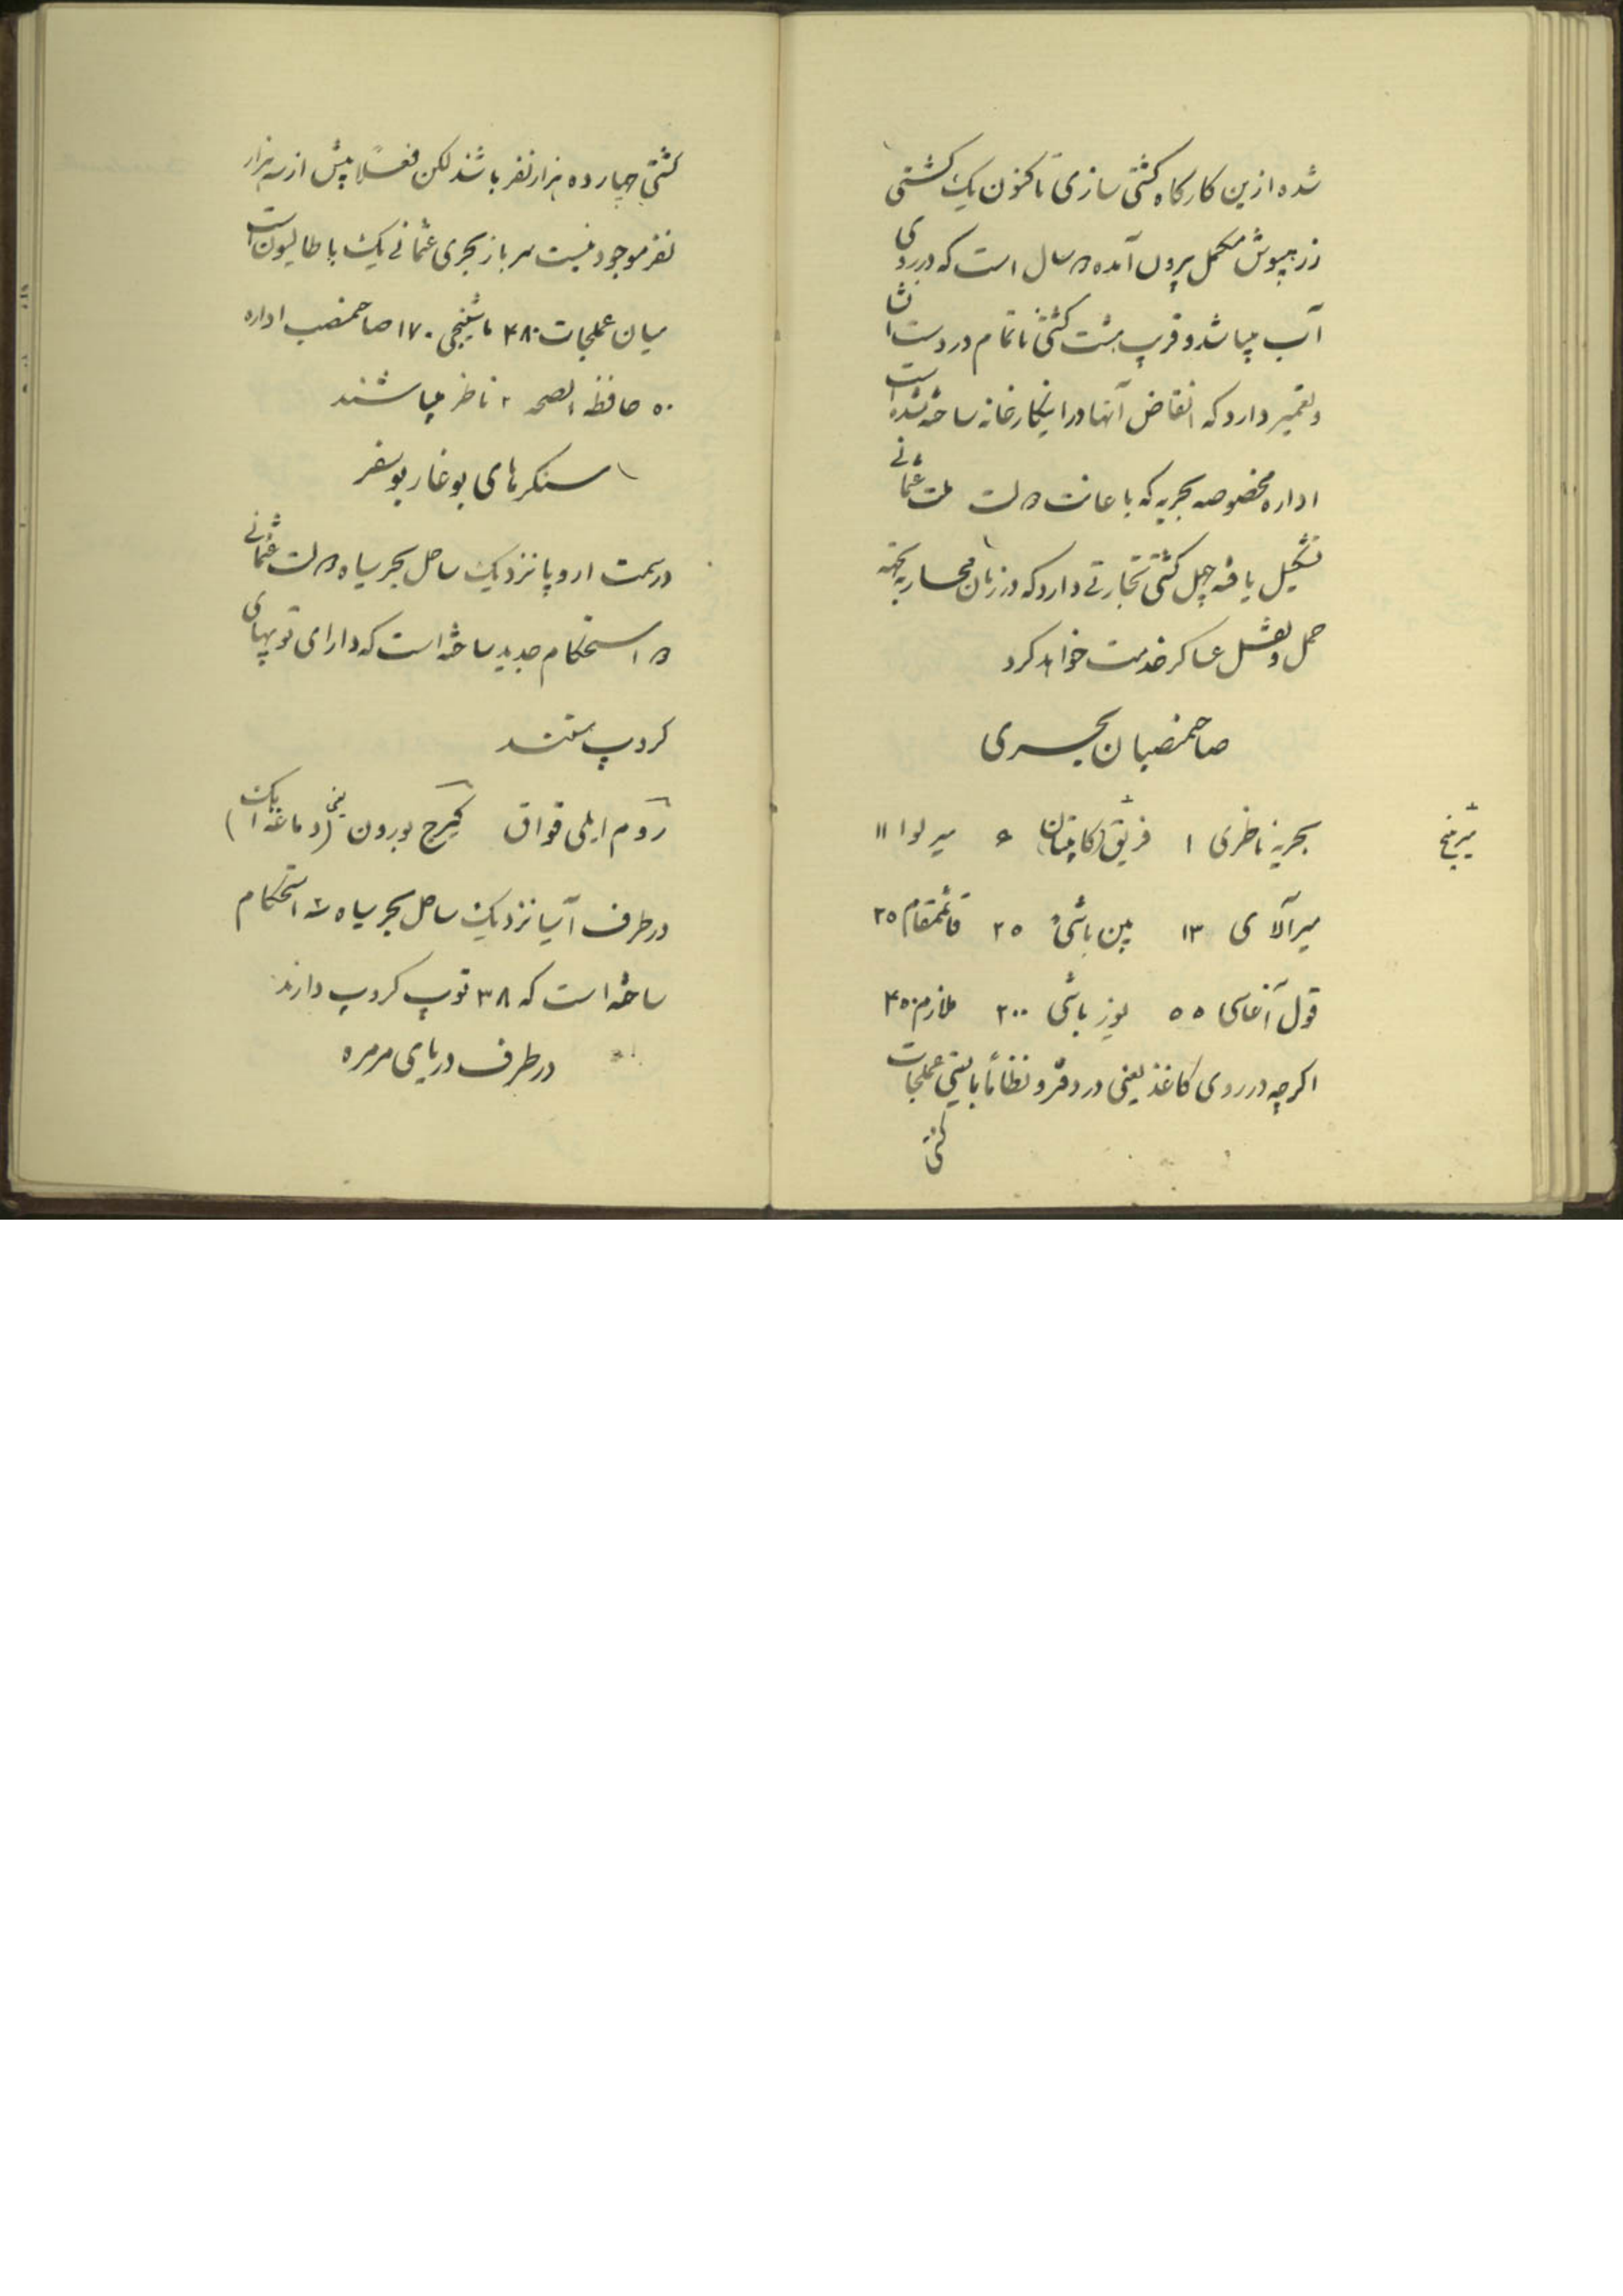 شده ازین کارکاه کشتی سازی تاکنون یک کشتی
زرهپوش مکمل بیرون آمده ۵ سال است که در روی
آب میباشد و قریب هشت کشتی ناتمام در دست انشا
و تعمیر دارد که انقاض آنها در اینکارخانه ساخته شده است
اداره مخصوصه بحریه که باعانت دولت ملت عثمانی
تشکیل یافته چهل کشتی تجارتی دارد که در زمان محاربه بجهة
حمل و نقل عساکر خدمت خواهد کرد
صاحبمنصبان بحری
بحریه ناظری ۱ فریق (کاپیتان) ۶ میرلوا ۱۱
میرآلای ۱۳ بین باشی ۲۵ قائممقام ۲۵
قول آغاسی ۵۵ یوز باشی ۲۰۰ ملازم ۴۵۰
اکرچه در روی کاغذ یعنی در دفتر و نظاماً بایستی عملجات
کشتی
کشتی چهارده هزار نفر باشند لکن فعلاً بیش از سه هزار
نفر موجود نیست سرباز بحری عثمانی یک باطالیون است
میان عملجات ۴۸۰ ماشینچی ۱۷۰ صاحبمنصب اداره
۵۰ حافظ الصحه ۲ ناظر میباشند
سنکرهای بوغاز بوسفر
در سمت اروپا نزدیک ساحل بحر سیاه دولت عثمانی
۵ استحکام جدید ساخته است که دارای توپهای
کروپ هستند
روم ایلی قواق کیرچ بورون یعنی (دماغه اکک)
در طرف آسیا نزدیک ساحل بحر سیاه سه استحکام
ساخته است که ۳۸ توپ کروپ دارند
در طرف دریای مرمره